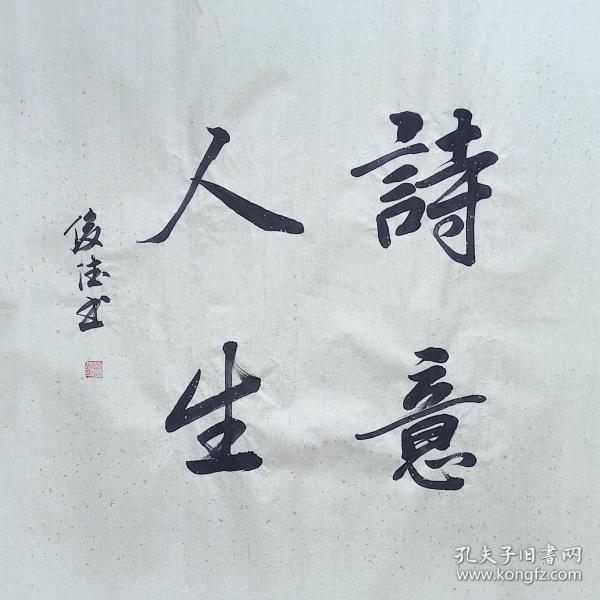 詩意
人生
俊德书
孔夫子旧書网
www.kongfz.com